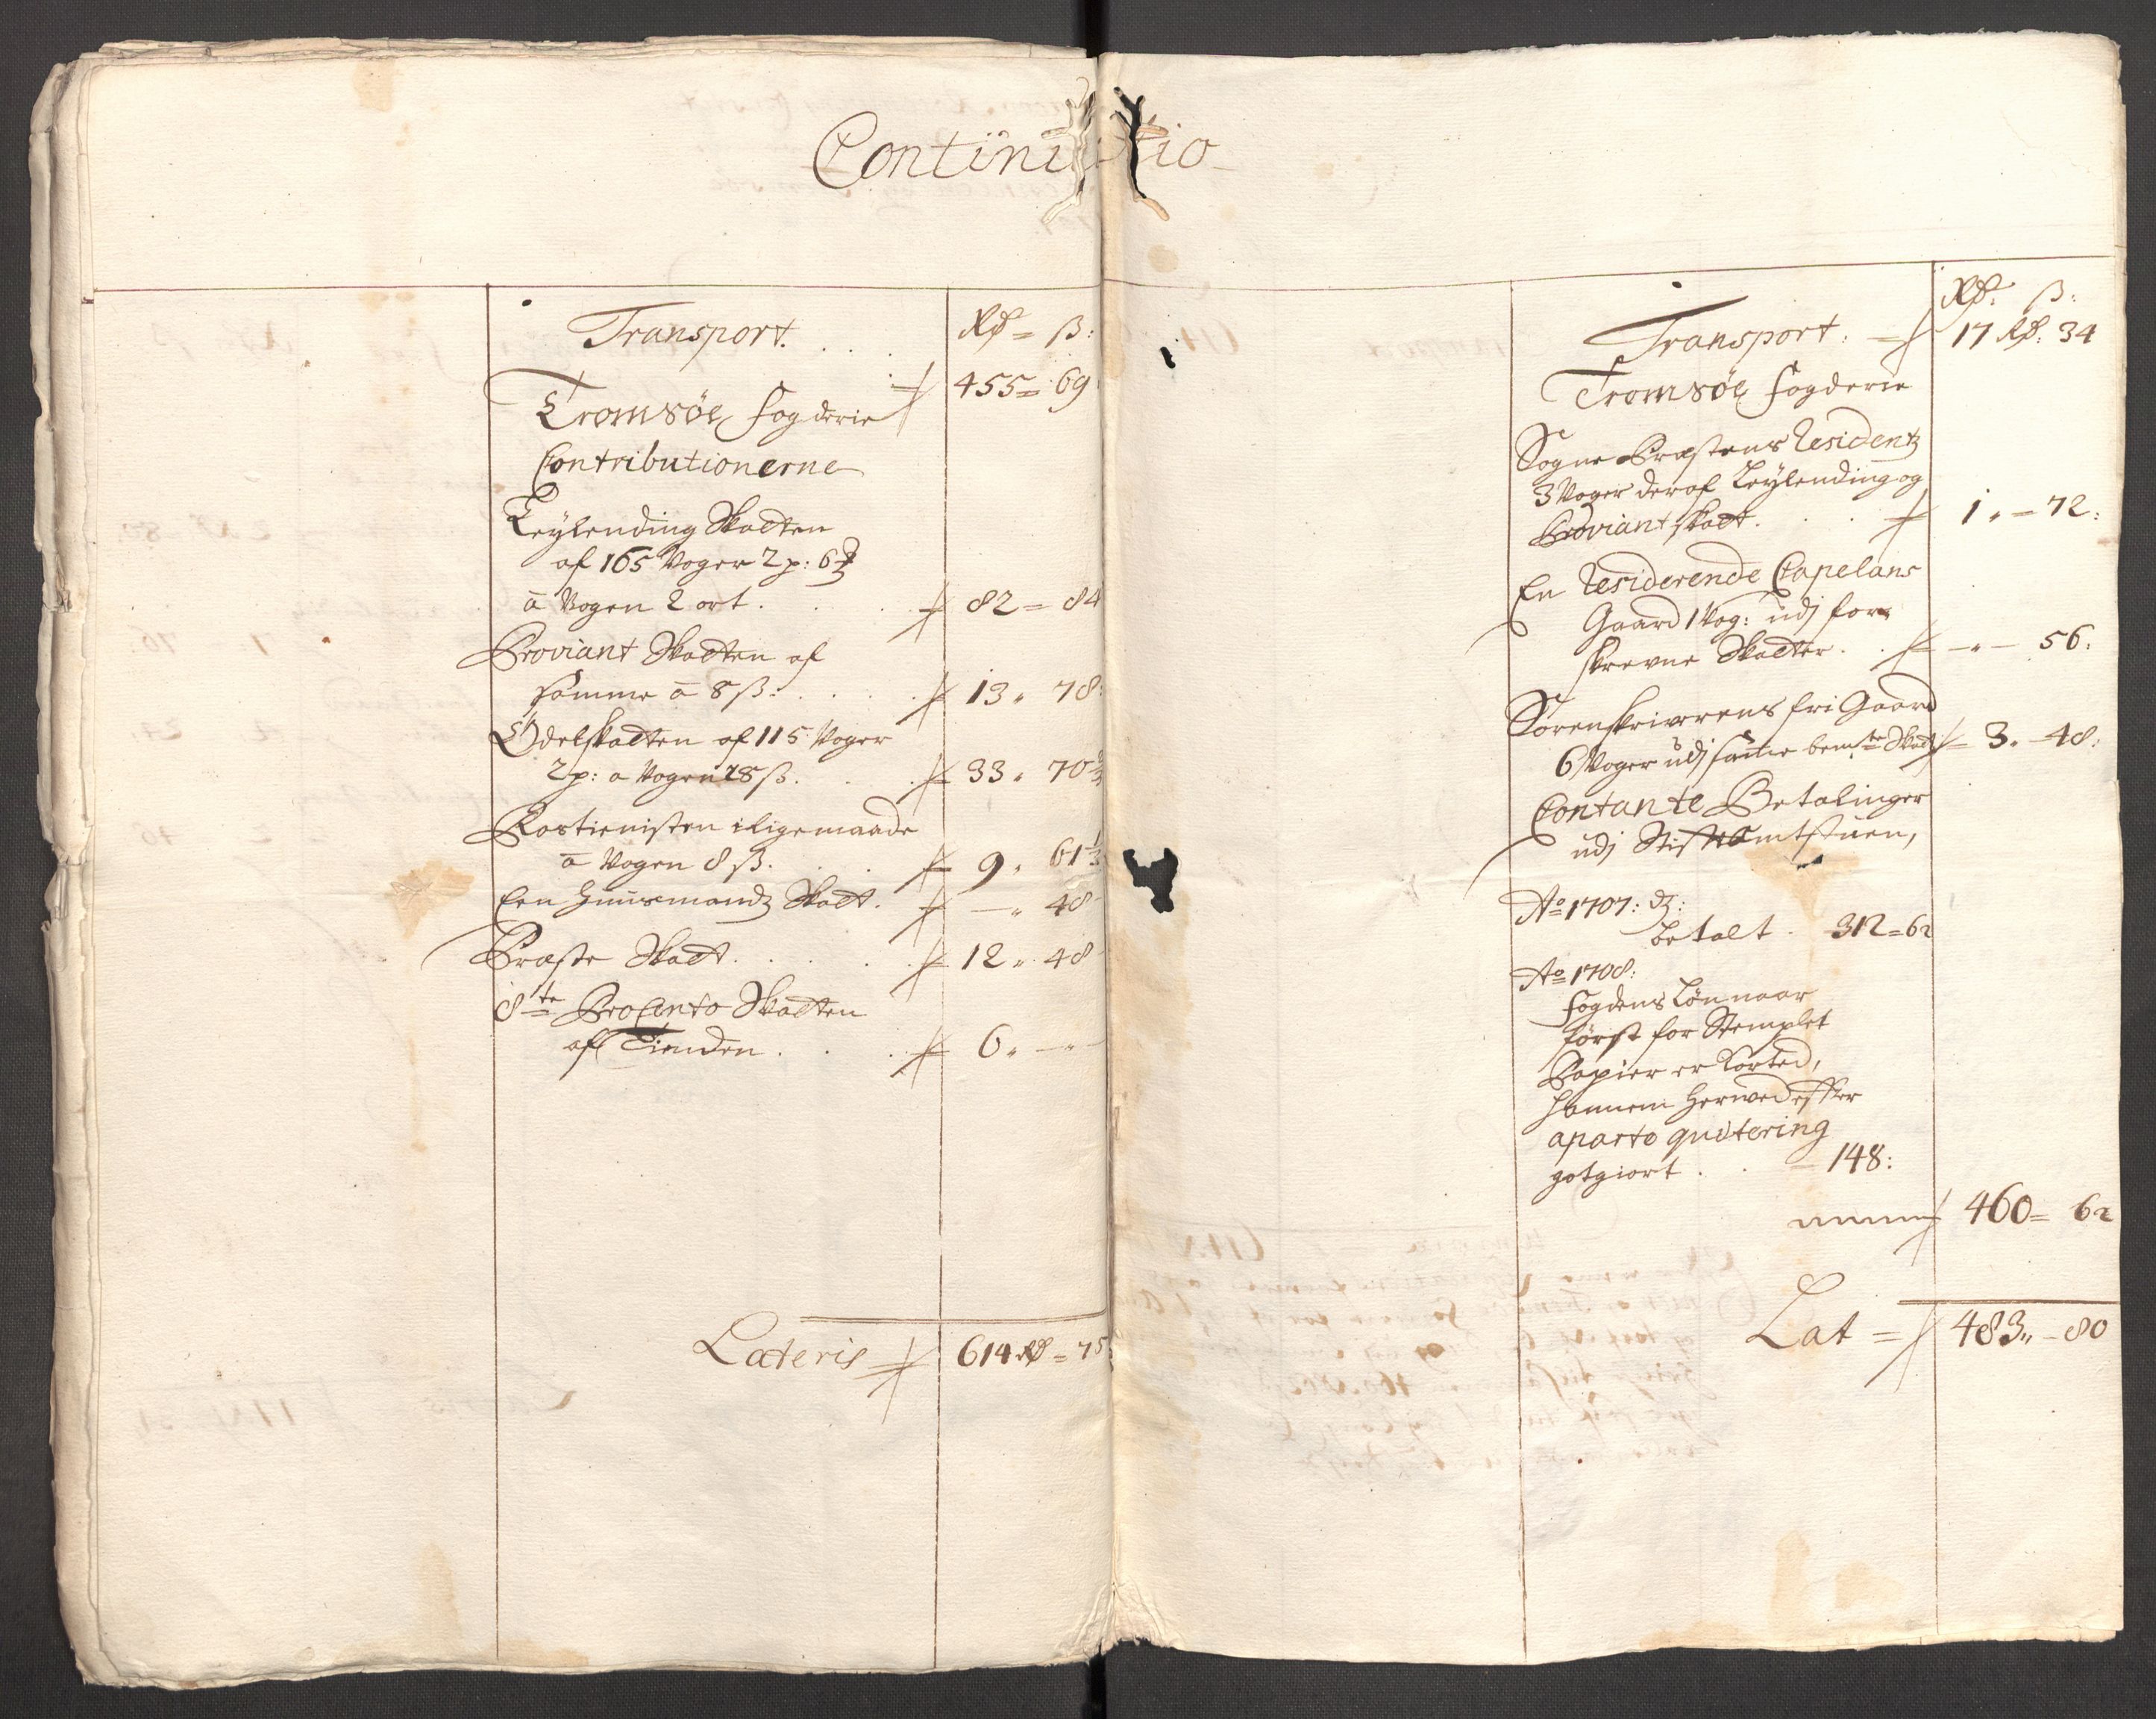 Continuatio
Rdr = ß:
Transport.
455 = 69
Tromsöe Fogderie
Contributionerne
Leylending Skatten
af 165 Voger 2 p: 6
à Vogen 2 ort . 82 = 84
Proviant Skatten af
samme à 8 ß: . 13 " 78
Odelskatten af 115 Voger
2 p: a Vogen 28 ß. 33 " 70 2/3
Rostienisten i ligemaade
à Vogen 8 ß. 9 " 61 1/3
Een Huusmandz Skatt. — " 48
Præste Skatt. 12 " 48
8te Procento Skatten
aff Tienden . 6 " — " —
Lateris 614 Rdr = 75
Rdr. ß:
Transport: 17 Rdr: 34
Tromsöe Fogderie
Sogne Præstens Residentz
3 Voger deraf Leylending og
Proviant skatt. 1 " — 72:
En Residerende Capelans
Gaard 1 Vog: udj for=
skrevne Skatter. — " — 56:
Sorenskriverens fri Gaard
6 Voger udj samme bemte Skatt 3 " — 48:
Contante Betalinger
udj Stiftamtstuen,
Ao 1707: d:
betalt . 312 = 62
Ao 1708:
Fogdens Lön naar
först for Stemplet
Papier er korted,
hannem herved efter
aparte qvitering
gotgiort . 148:
460 = 62
Lat = 483 " — 80